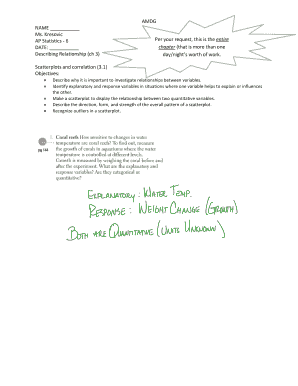 AMDG
NAME
Ms. Kresovic
AP Statistics - 8
DATE:
Describing Relationship (ch 3)
Per your request, this is the entire
chapter (that is more than one
day/night's worth of work.
Scatterplots and correlation (3.1)
Objectives:
• Describe why it is important to investigate relationships between variables.
• Identify explanatory and response variables in situations where one variable helps to explain or influences
the other.
• Make a scatterplot to display the relationship between two quantitative variables.
• Describe the direction, form, and strength of the overall pattern of a scatterplot.
• Recognize outliers in a scatterplot.
Coral reefs How sensitive to changes in water
temperature are coral reefs? To find out, measure
the growth of corals in aquariums where the water
temperature is controlled at different levels.
Growth is measured by weighing the coral before and
after the experiment. What are the explanatory and
response variables? Are they categorical or
quantitative?
EXPLANATORY: WATER TEMP.
RESPONSE: WEIGHT CHANGE (GROWTH)
BOTH ARE QUANTITATIVE (UNITS UNKNOWN)